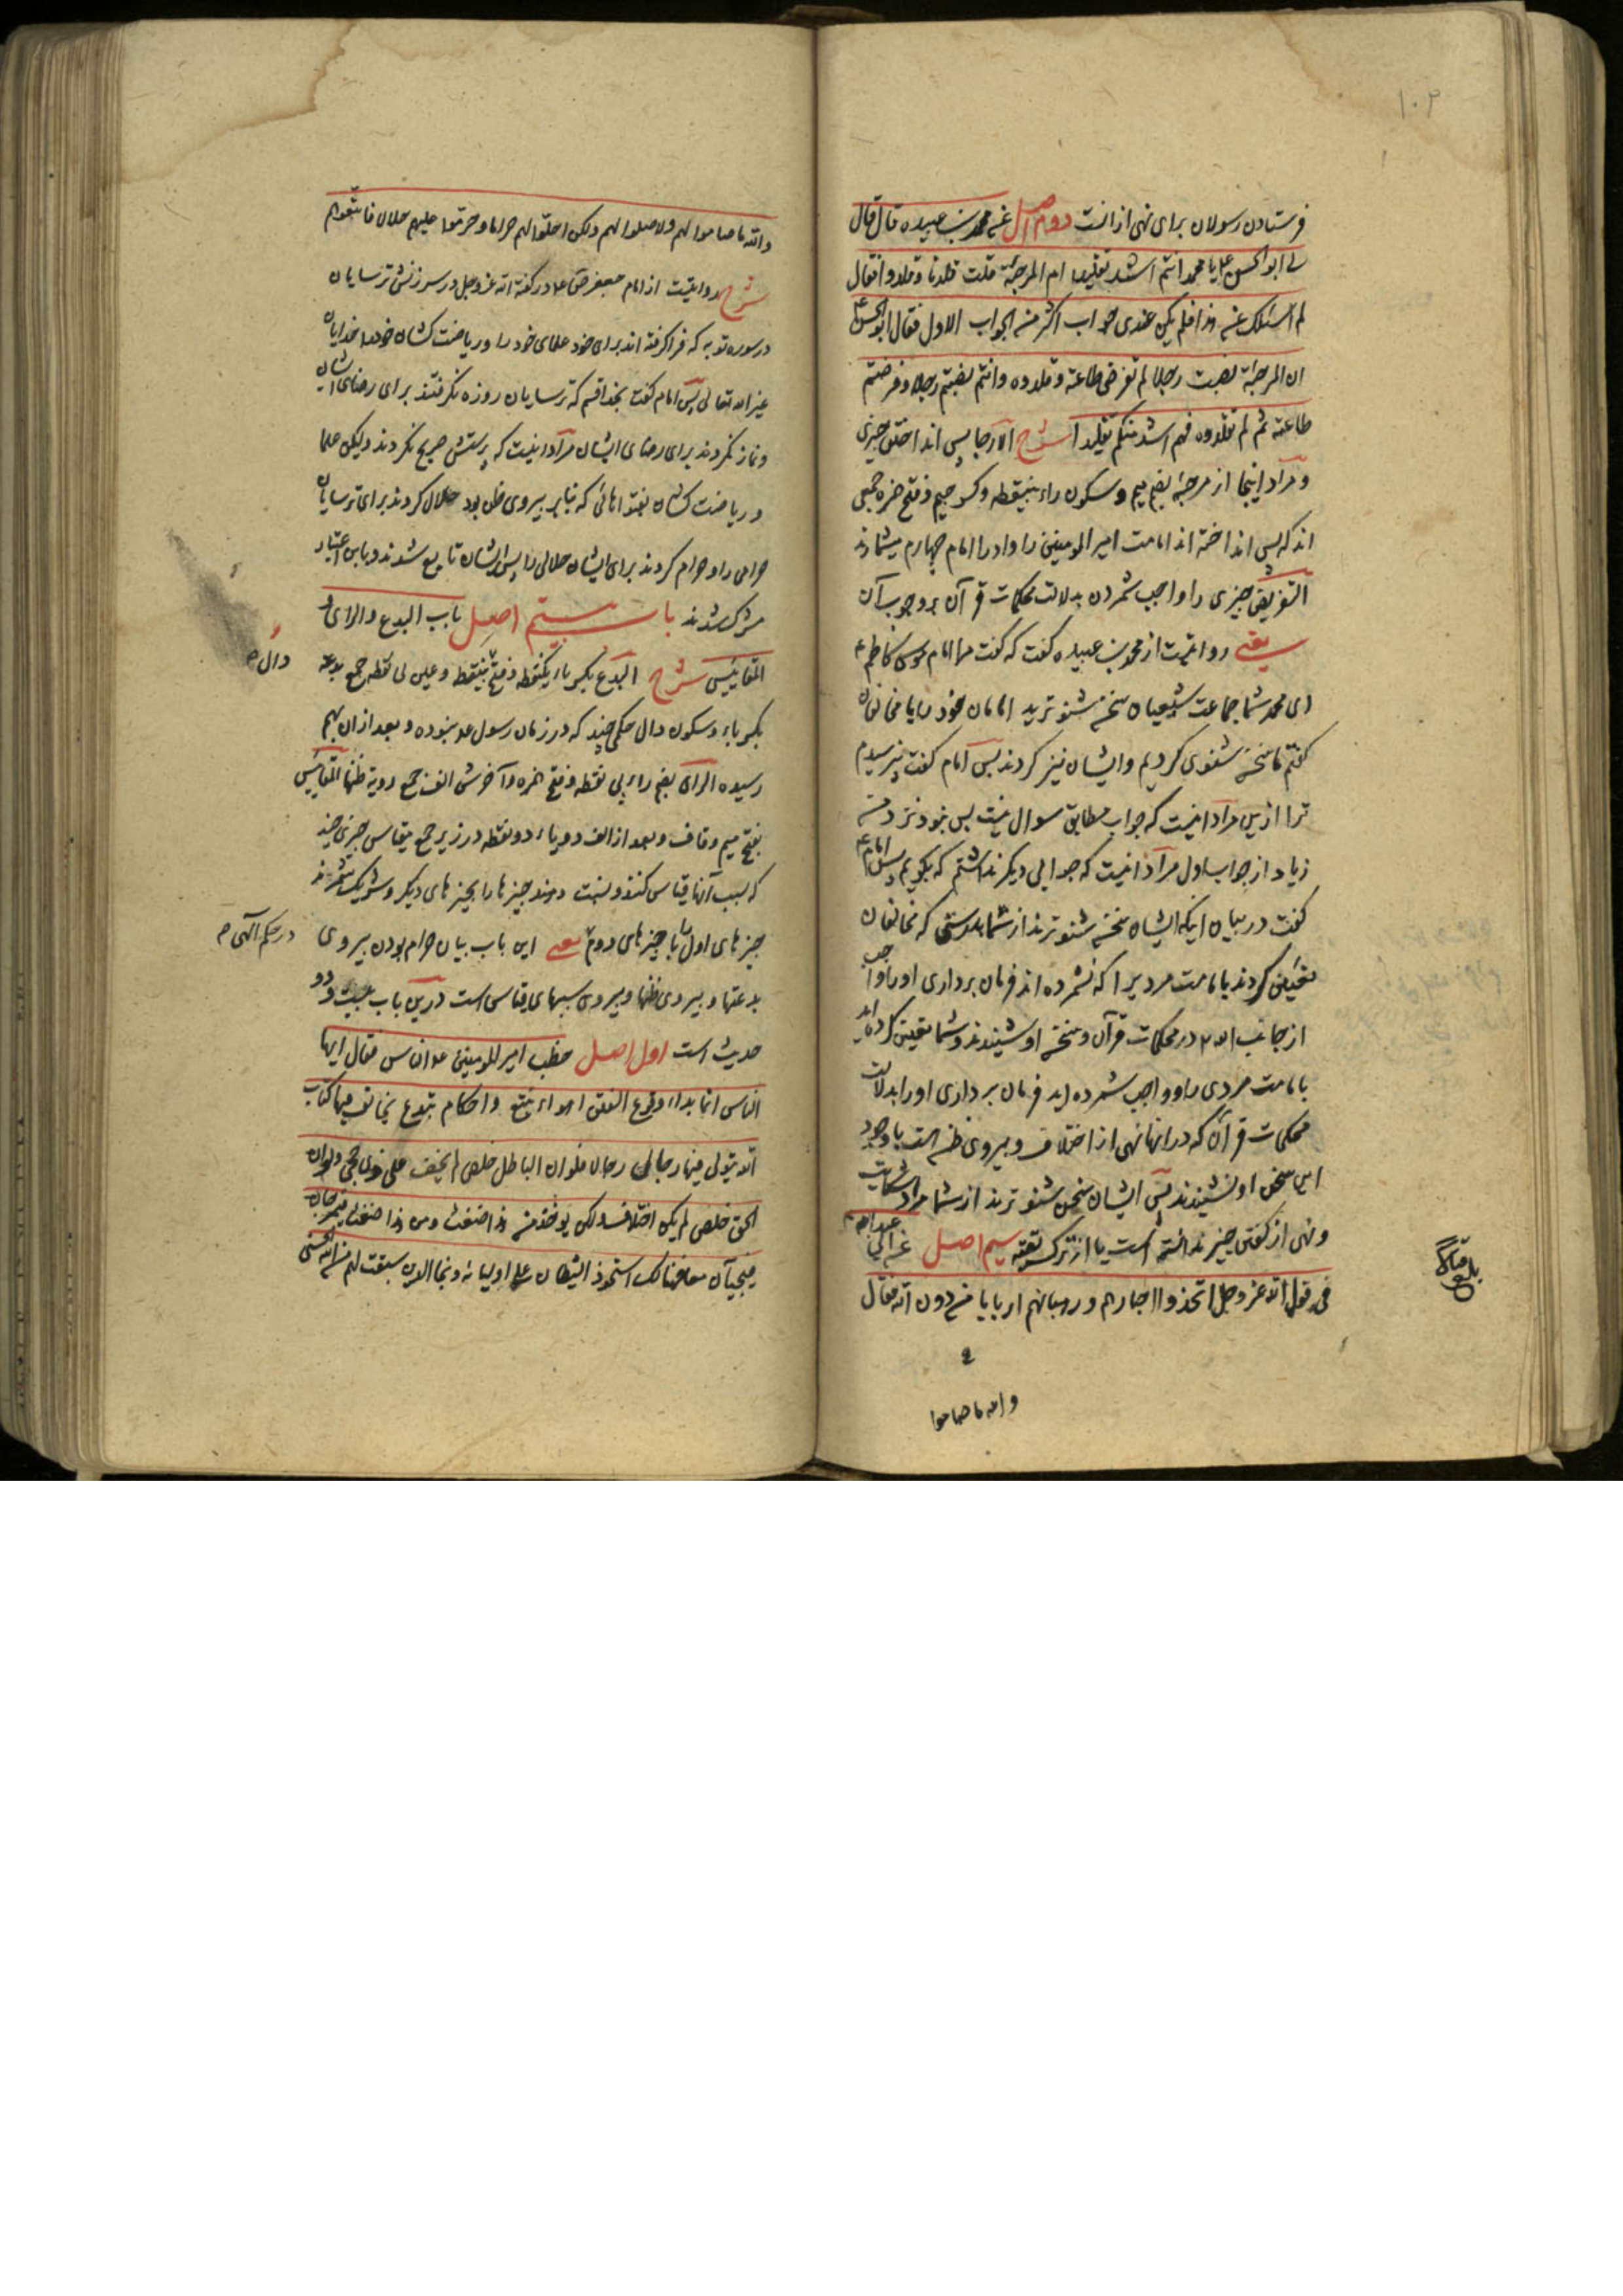 ۱۰۲
فرستادن رسولان برای نهی از انست دوم اصل عن محمد بن عبیده قال قال
لی ابو الحسن ع یا محمد انتم اشد تقلیدا ام المرجئة قلت قلدنا و قلدوا فقال
لم اسئلک عن هذا فلم یکن عندی جواب اکثر من الجواب الاول فقال ابو الحسن ع
ان المرجئة نصبت رجلا لم تفرض طاعته و قلدوه و انتم نصبتم رجلا و فرضتم
طاعته ثم لم تقلدوه فهم اشد منکم تقلیدا شرح الارجا پس انداختن چیزی
و مراد اینجا از مرجئه بضم میم و سکون راء بینقطه و کسر جیم و فتح همزه جمعی
اند که پس انداخته اند امامت امیر المومنین را و او را امام چهارم میشمارند
التفریض چیزی را واجب شمردن بدلالت محکمات قرآن بر وجوب آن
یعنی روایتست از محمد بن عبیده گفت که گفت مرا امام موسی کاظم ع
ای محمد شما جماعت شیعیان سخن شنو ترید امامان خود را یا مخالفان
گفتم ما سخن شنوی کردیم و ایشان نیز کردند پس امام گفت نپرسیدم
ترا ازین مراد اینست که جواب مطابق سوال نیست پس نبود نزد من
زیاد از جواب اول مراد اینست که جوابی دیگر نداشتم که بگویم پس امام ع
گفت در بیان اینکه ایشان سخن شنو ترند از شما بدرستی که مخالفان
تعیین کردند بامامت مردیرا که نشمرده اند فرمان برداری او را واجب
از جانب الله در محکمات قرآن و سخن او شنیدند و شما تعیین کرده اید
بامامت مردی را و واجب شمرده اید فرمان برداری او را بدلالت
محکمات قرآن که در انها نهی از اختلاف و پیروی ظن است با وجود
این سخن او نشنیدند پس ایشان سخن شنو ترند از شما مراد شکایت
و نهی از گفتن چیز ندانسته است یا از ترک تقیه سیم اصل عن ابی عبد الله ع
فی قول الله عز و جل اتخذوا احبارهم و رهبانهم اربابا من دون الله فقال
و الله ما صاموا
بلغ
و الله ما صاموا لهم و لا صلوا لهم و لکن احلوا لهم حراما و حرموا علیهم حلالا فاتبعوهم
شرح روایتست از امام جعفر صادق ع در گفته الله عز و جل در سرزنش ترسایان
در سوره توبه که فرا گرفته اند برای خود علمای خود را و ریاضت کشان خود را خدایان
غیر الله تعالی پس امام گفت بخدا قسم که ترسایان روزه نگرفتند برای رضای ایشان
و نماز نکردند برای رضای ایشان مراد اینست که پرستش صریح نکردند و لیکن علما
و ریاضت کشان بفتواهائی که بنابر پیروی ظن بود حلال کردند برای ترسایان
حرامی را و حرام کردند برای ایشان حلالی را پس ایشان تابع شدند و باین اعتبار
مشرک شدند باب بیستم اصل باب البدع و الرای و
المقاییس شرح البدع بکسر باء یکنقطه و فتح دال بینقطه و عین بی نقطه جمع بدعة
بکسر باء و سکون دال حکمی چند که در زمان رسول ع نبوده و بعد ازان بهم
رسیده الرای بفتح راء بی نقطه و فتح همزه و آخرش الف جمع رویة ظنها المقاییس
بفتح میم و قاف و بعد از الف دو یاء دو نقطه در زیر جمع مقیاس چیزی چند
که بسبب آنها قیاس کنند و نسبت دهند چیزها را بچیزهای دیگر و شریک شمرند
چیزهای اول را با چیزهای دوم در حکم الهی یعنی این باب بیان حرام بودن پیروی
بدعتها و پیروی ظنها و پیروی سببهای قیاس است درین باب بیست و دو
حدیث است اول اصل خطب امیر المومنین ع الناس فقال ایها
الناس انما بدء وقوع الفتن اهواء تتبع و احکام تبتدع یخالف فیها کتاب
الله یتولی فیها رجال رجالا فلو ان الباطل خلص لم یخف علی ذی حجی و لو ان
الحق خلص لم یکن اختلاف و لکن یوخذ من هذا ضغث و من هذا ضغث فیمزجان
فیجیآن معا فهنالک استحوذ الشیطان علی اولیائه و نجا الذین سبقت لهم من الله الحسنی